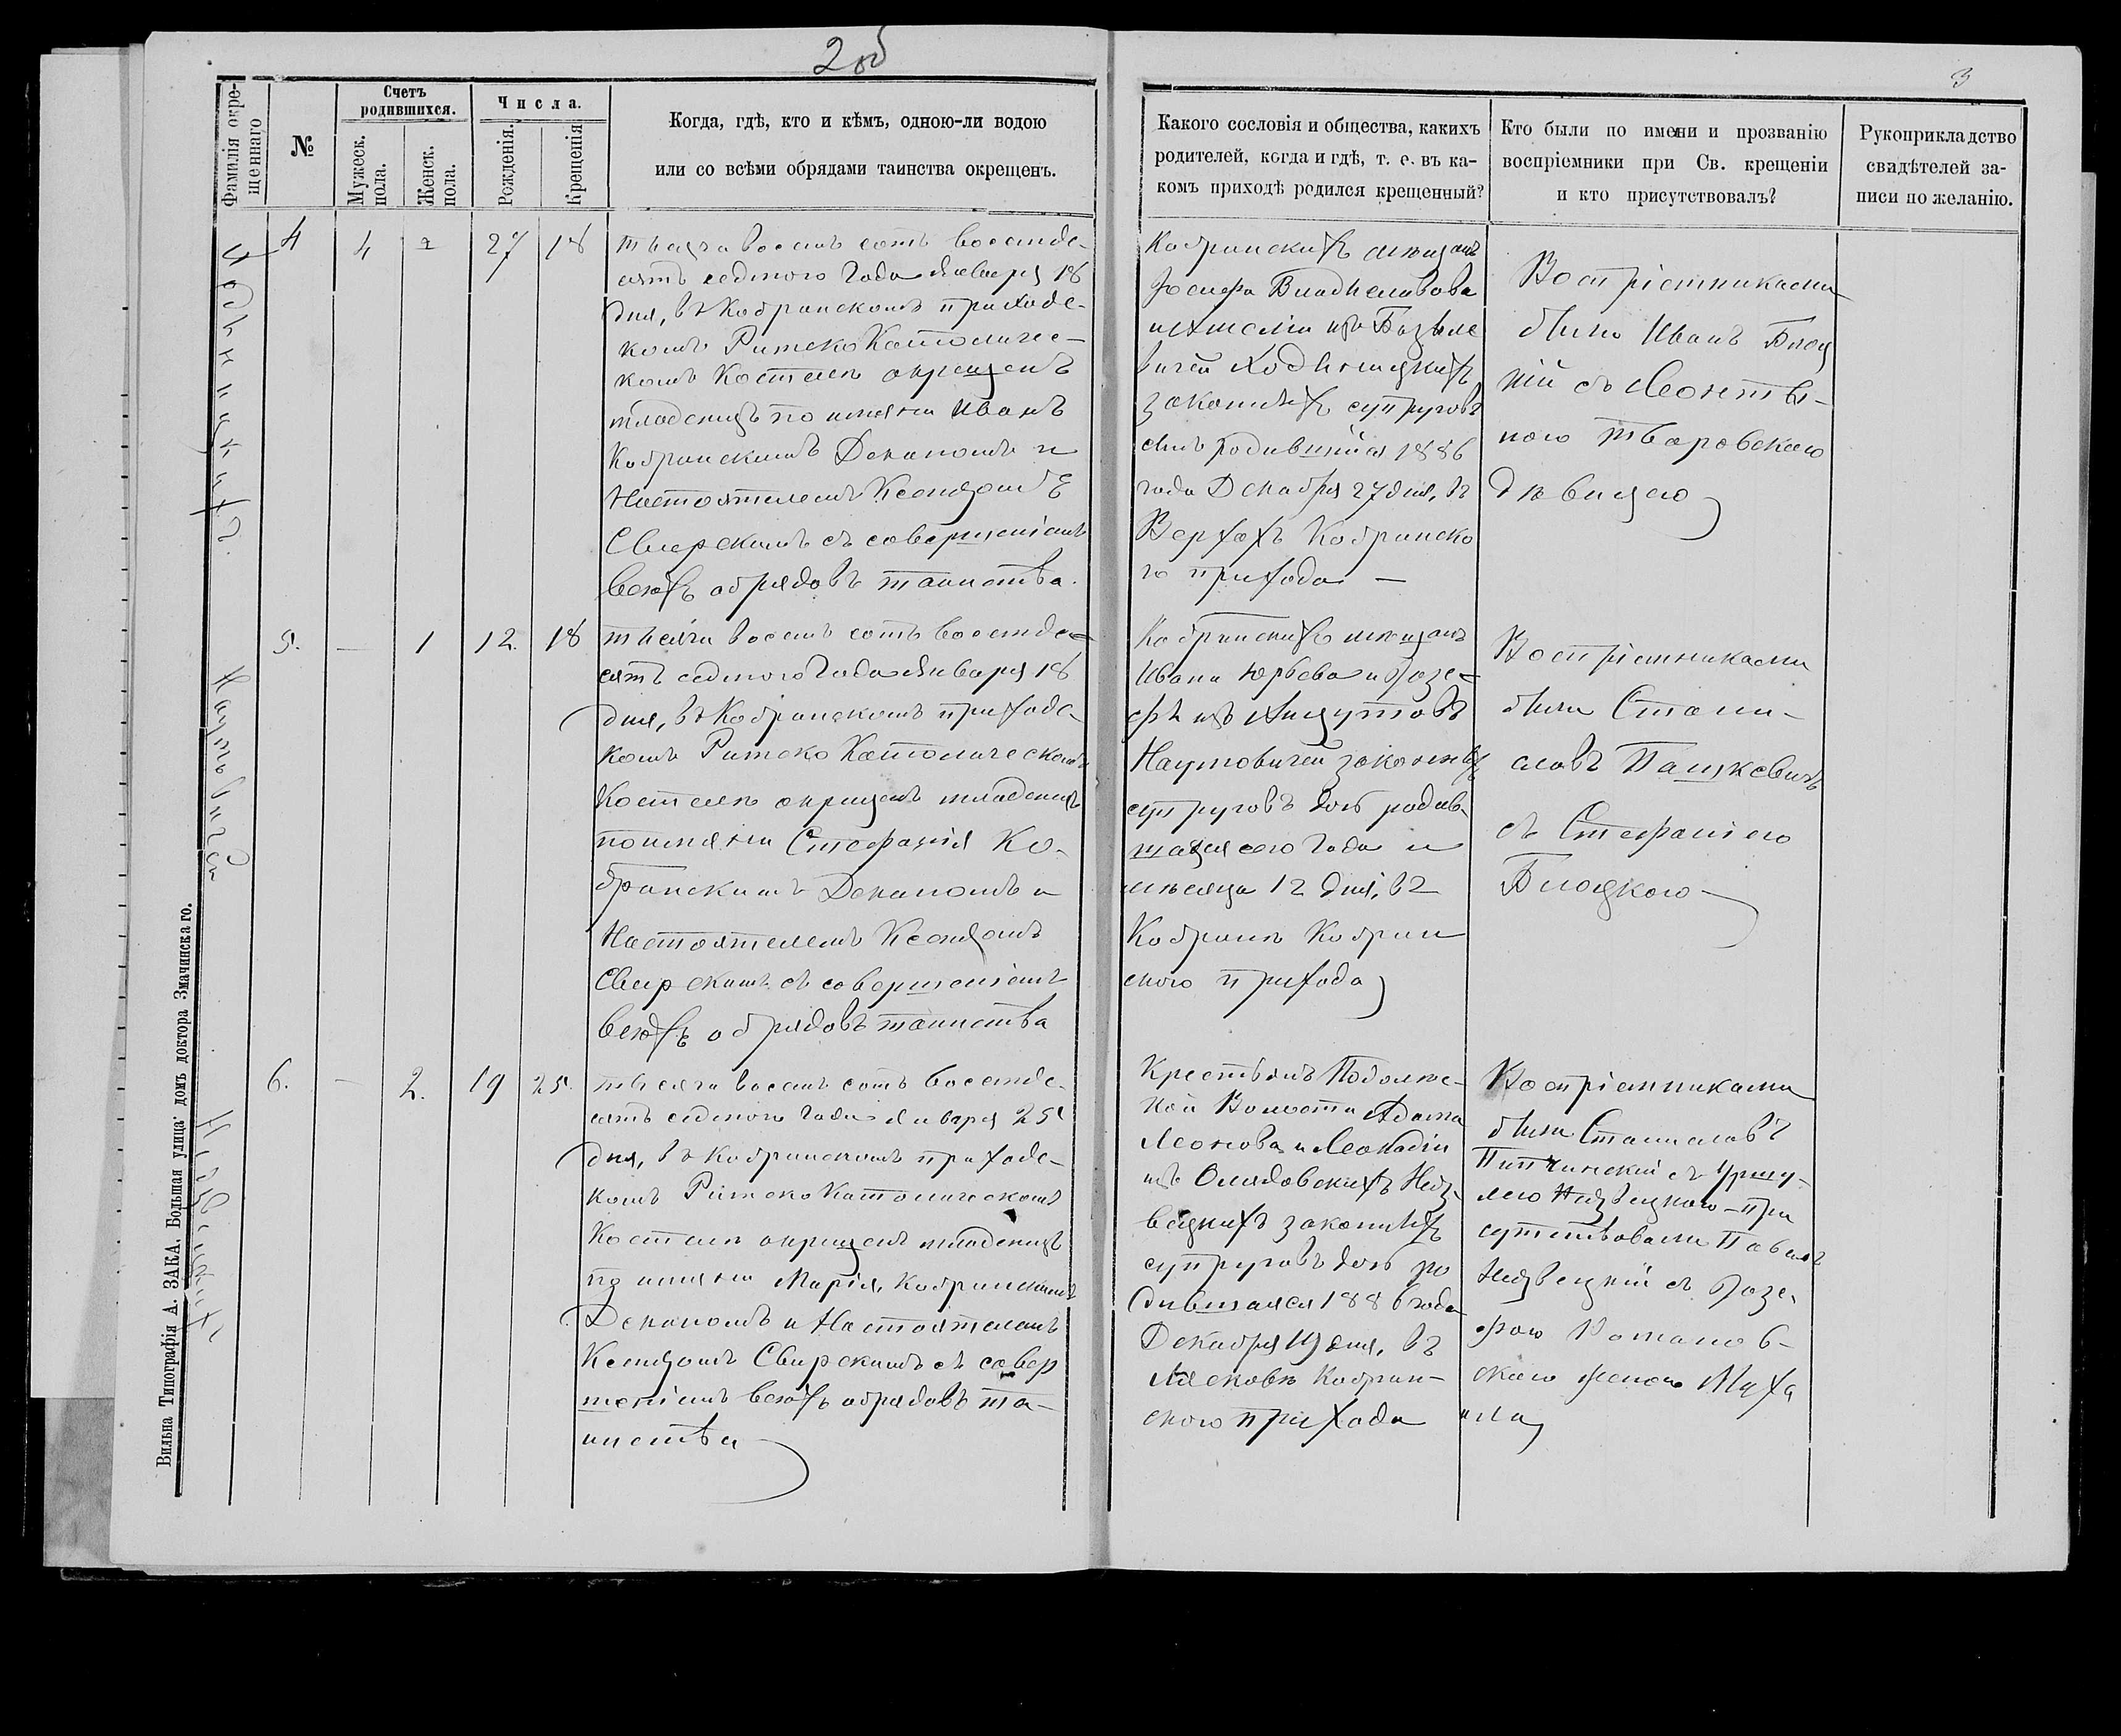 2 об
3
Фамилія окрещеннаго
№
Счетъ родившихся.
Мужеск. пола.
Женск. пола.
Числа.
Рожденія.
Крещенія
Когда, гдѣ, кто и кѣмъ, одною-ли водою
или со всѣми обрядами таинства окрещенъ.
Какого сословія и общества, какихъ
родителей, когда и гдѣ, т. е. въ ка-
комъ приходѣ родился крещенный?
Кто были по имени и прозванію
воспріемники при Св. крещеніи
и кто присутствовалъ?
Рукоприкладство
свидѣтелей за-
писи по желанію.
4
4
27
18
тысяча восемь сотъ восемьде-
сятъ седмого Года Января 18
дня, въ Кобринскомъ приходс-
комъ Римско Католичес-
комъ Костелѣ окрещенъ
младенецъ по имени Иванъ
Кобринскимъ Деканомъ и
Настоятелемъ Ксендзомъ
Свирскимъ съ совершеніемъ
всѣхъ обрядовъ таинства.
Кобринскихъ мѣщанъ
Іосифа Владиславова
и Амеліи изъ
законныхъ супруговъ
сынъ родившійся 1886
года Декабря 27 дня, въ
Верхахъ Кобринско
го прихода —
Воспріемниками
были Иванъ
дѣвицею
5.
—
1
12.
18
тысяча восемь сотъ восемьде-
сятъ седмого Года Января 18
дня, въ Кобринскомъ приходс-
комъ Римско Католическомъ
Костелѣ окрещенъ младенецъ
по имени Стефанія Ко-
бринскимъ Деканомъ и
Настоятелемъ Ксендзомъ
Свирскимъ съ совершеніемъ
всѣхъ обрядовъ таинства
Кобринскихъ мѣщанъ
Ивана Юрьева и Юзе-
фы изъ
Наумовичей законныхъ
супруговъ дочь родив-
шаяся сего Года и
мѣсяца 12 дня, въ
Кобринѣ Кобрин
ского прихода
Воспріемниками
были Стани-
славъ Пашкевичъ
съ Стефаніею
Блоцкою
6.
—
2.
19
25.
тысяча восемь сотъ восемьде-
сятъ седмого Года Января 25
дня, въ Кобринскомъ приходс-
комъ Римско Католическомъ
Костелѣ окрещенъ младенецъ
по имени Марія, Кобринскимъ
Деканомъ и Настоятелемъ
Ксендзомъ Свирскимъ съ совер
шеніемъ всѣхъ обрядовъ та-
инства
Крестьянъ
Волости Адама
Леонова и Леокадіи
изъ
законныхъ
супруговъ дочь ро
дившаяся 1886 года
Декабря 19 дня, въ
Лясковѣ Кобрин-
ского прихода
Воспріемниками
были Станиславъ
съ Уршу-
лею Недзвецкою — при
сутствовали Павелъ
Недзвецкій съ Юзе-
фою Романов-
скою женою Миха
ила
Вильна Типографія А. ЗАКА. Большая улица: домъ доктора Змачинскаго.